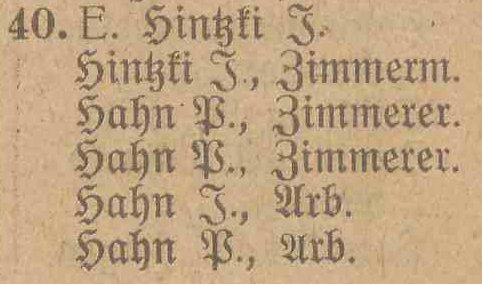 40. E. Hintzki J.
Hintzki J., Zimmerm.
Hahn P., Zimmerer.
Hahn P., Zimmerer.
Hahn J., Arb.
Hahn P., Arb.